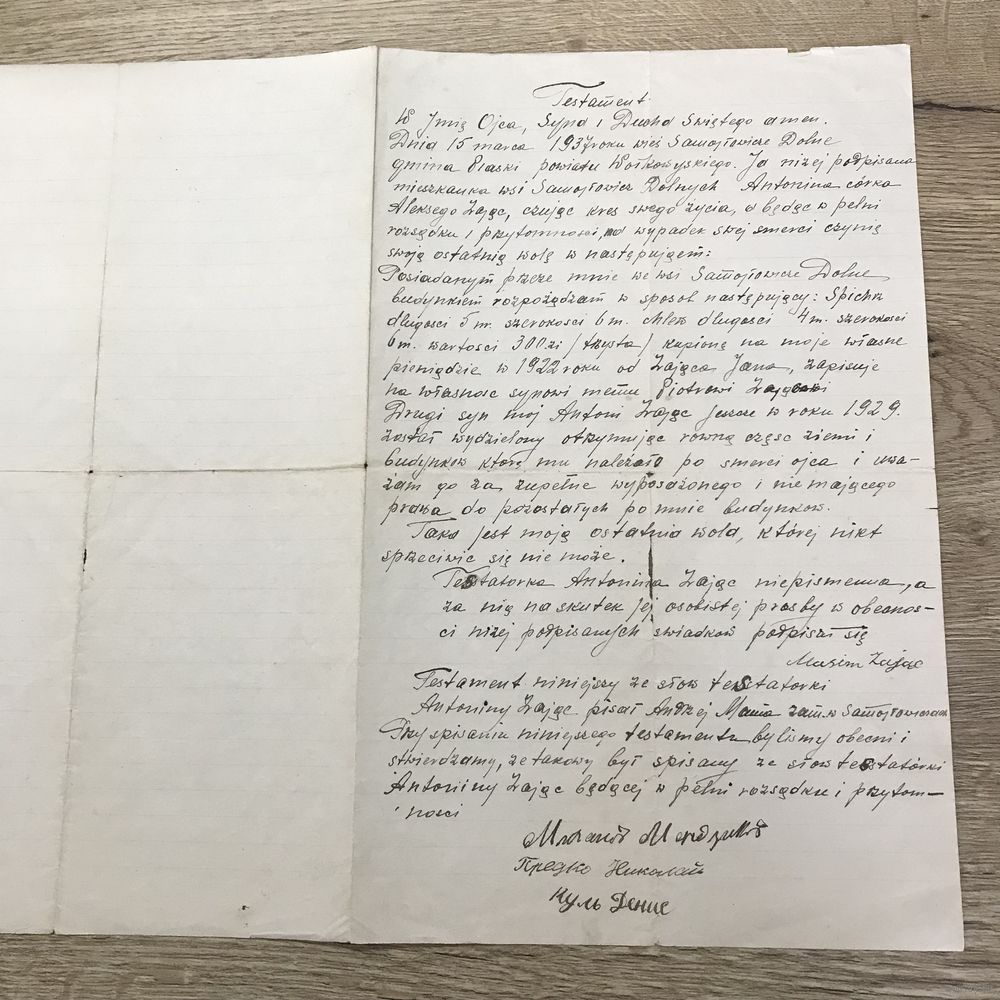 Testament
W Imię Ojca, Syna i Ducha Świętego amen.
Dnia 15 marca 1937 roku wieś Samojłowicze Dolne
gmina Piaski powiatu Wołkowyskiego. Ja niżej podpisana
mieszkanka wsi Samojłowicz Dolnych Antonina córka
Aleksego Zając, czując kres swego życia, a będąc w pełni
rozsądku i przytomności, na wypadek swej smierci czynię
swoją ostatnią wolę w następującem:
Posiadanym przeze mnie we wsi Samojłowicze Dolne
budynkiem rozpożądzam w sposob następujący: Spichrz
dlugosci 5 m. szerokosci 6 m. chlew dlugosci 4 m. szerokosci
6 m. wartosci 300 zł /trzysta/ kupioną na moje własne
pieniądze w 1922 roku od Zająca Jana, zapisuje
na własnosc synowi memu Piotrowi
Drugi syn moj Antoni Zając jeszcze w roku 1929.
został wydzielony otrzymując rowną częsc ziemi i
budynkow ktora mu należało po smierci ojca i uwa-
żam go za zupełnie wyposażonego i nie mającego
prawa do pozostałych po mnie budynkow.
Taka jest moją ostatnia wola, której nikt
sprzeciwic się nie może.
Testatorka Antonina Zając niepismenna, a
za nią na skutek jej osobistej prosby w obecnos-
ci niżej podpisanych swiadkow podpisał się
Zając
Testament niniejszy ze słow testatorki
Antoniny Zając pisał Andrzej zam. w
Przy spisaniu niniejszego testamentu bylismy obecni i
stwierdzamy, ze takowy był spisany ze słow testatorki
Antoniny Zając będącej w pełni rozsądku i przytom-
ności
Предко Николай
Куль Денис